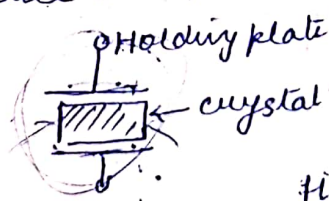 Holding plate
crystal
H